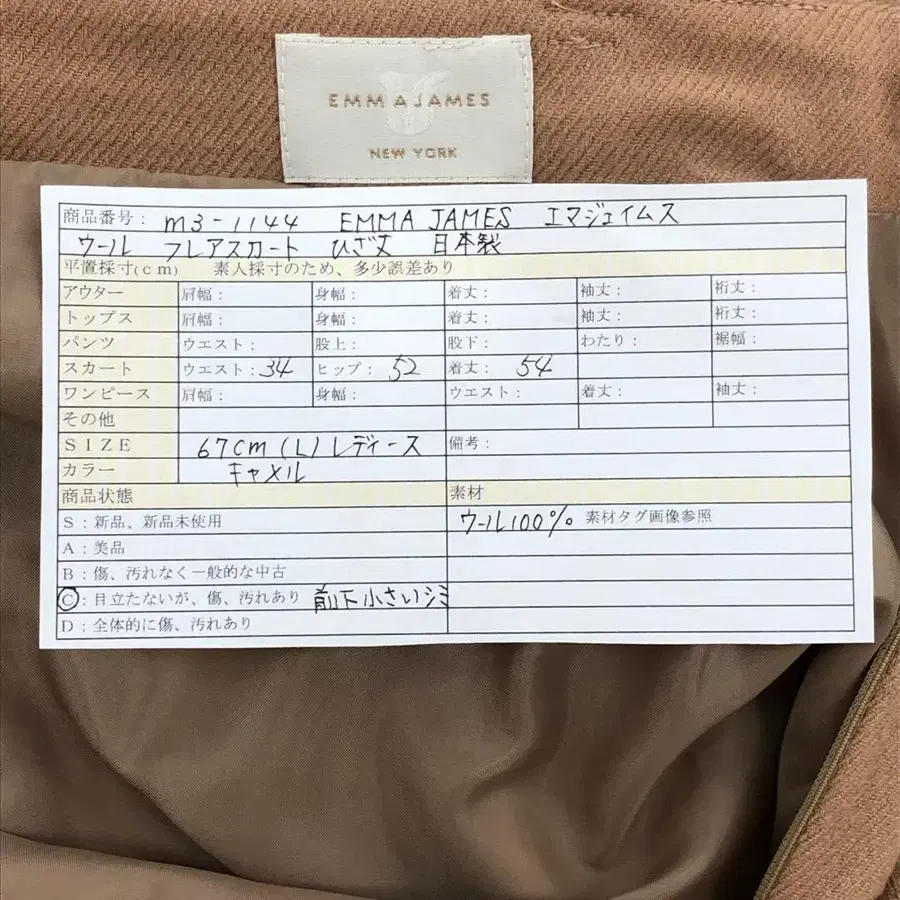 EMMA JAMES
NEW YORK
商品番号： m3-1144 EMMA JAMES エマジェイムス
ウール フレアスカート ひざ丈 日本製
平置採寸(cm) 素人採寸のため、多少誤差あり
アウター 肩幅： 身幅： 着丈： 袖丈： 裄丈：
トップス 肩幅： 身幅： 着丈： 袖丈： 裄丈：
パンツ ウエスト： 股上： 股下： わたり： 裾幅：
スカート ウエスト：34 ヒップ：52 着丈：54
ワンピース 肩幅： 身幅： ウエスト： 着丈： 袖丈：
その他
SIZE 67cm (L) レディース 備考：
カラー キャメル
商品状態 素材
S：新品、新品未使用 ウール100% 素材タグ画像参照
A：美品
B：傷、汚れなく一般的な中古
C：目立たないが、傷、汚れあり 前下小さいシミ
D：全体的に傷、汚れあり